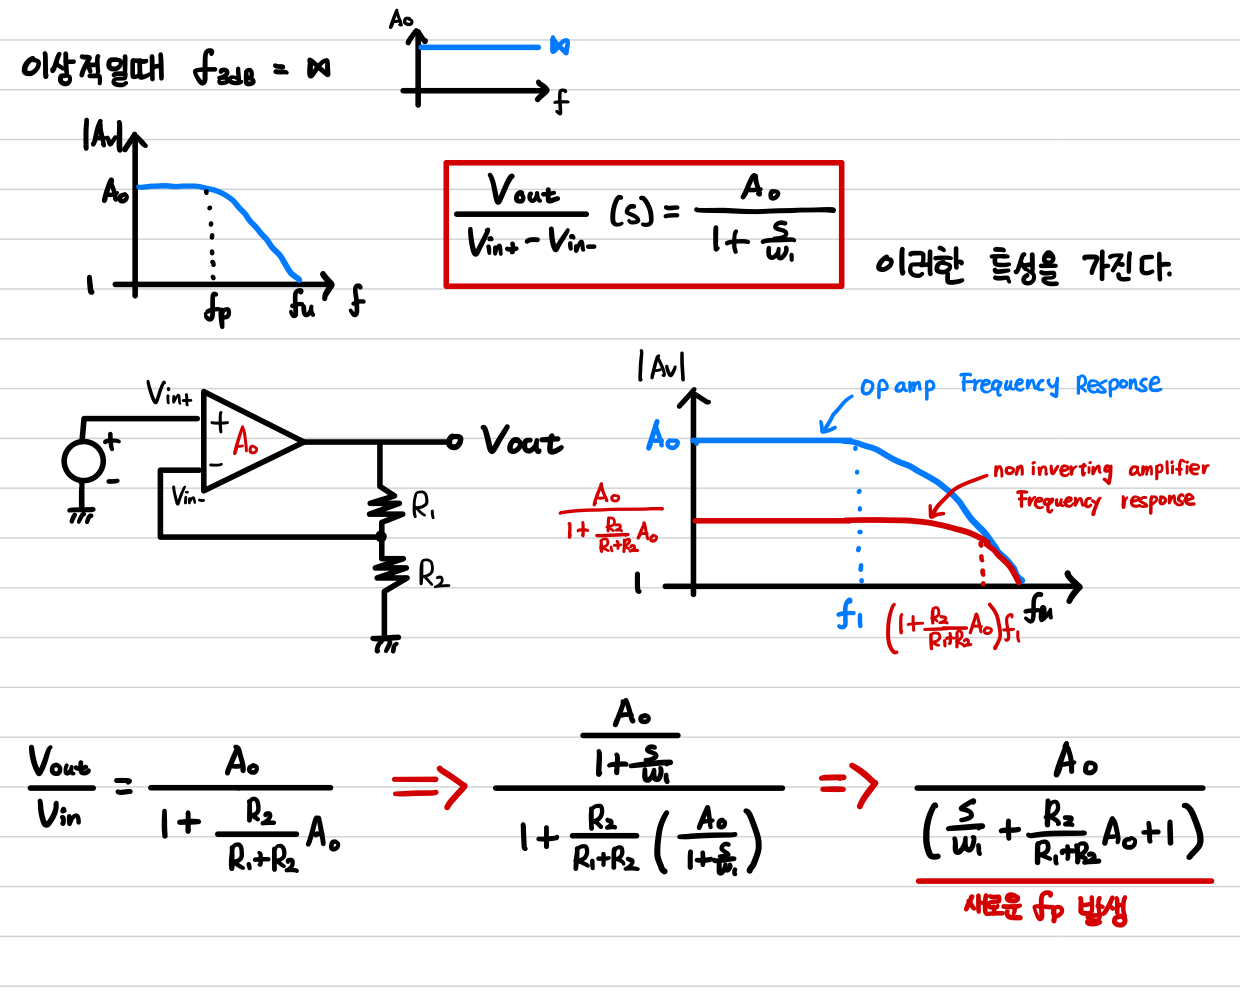 이상적일때 f3dB = ∞
A₀
∞
f
|Av|
A₀
1
fp fu f
Vout / (Vin+ - Vin-) (s) = A₀ / (1 + s/w₁)
이러한 특성을 가진다.
Vin+
+
A₀
-
Vin-
+
-
Vout
R₁
R₂
|Av|
op amp Frequency Response
A₀
non inverting amplifier
Frequency response
A₀ / (1 + (R₂/(R₁+R₂)) A₀)
1
f₁ (1 + (R₂/(R₁+R₂)) A₀) f₁ fu
Vout / Vin = A₀ / (1 + (R₂/(R₁+R₂)) A₀) ⇒ (A₀ / (1 + s/w₁)) / (1 + (R₂/(R₁+R₂)) (A₀ / (1 + s/w₁))) ⇒ A₀ / (s/w₁ + (R₂/(R₁+R₂)) A₀ + 1)
새로운 fp 발생